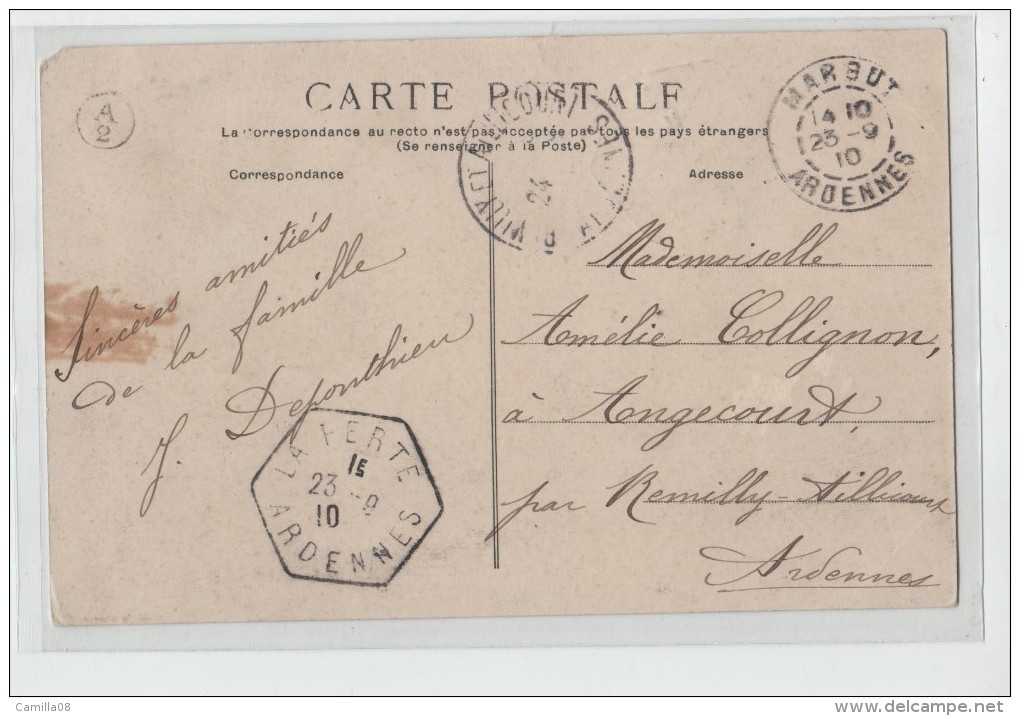 A
2
CARTE POSTALE
La Correspondance au recto n'est pas acceptée par tous les pays étrangers
(Se renseigner à la Poste)
Correspondance
Adresse
MARGUT
14 10
23 -9
10
ARDENNES
24
Sincères amitiés
de la famille
J. Deponthieu
Mademoiselle
Amélie Collignon,
à Angecourt,
par Remilly-Aillicourt
Ardennes
LA FERTE
15
23 -9
10
ARDENNES
Camilla08
www.delcampe.net